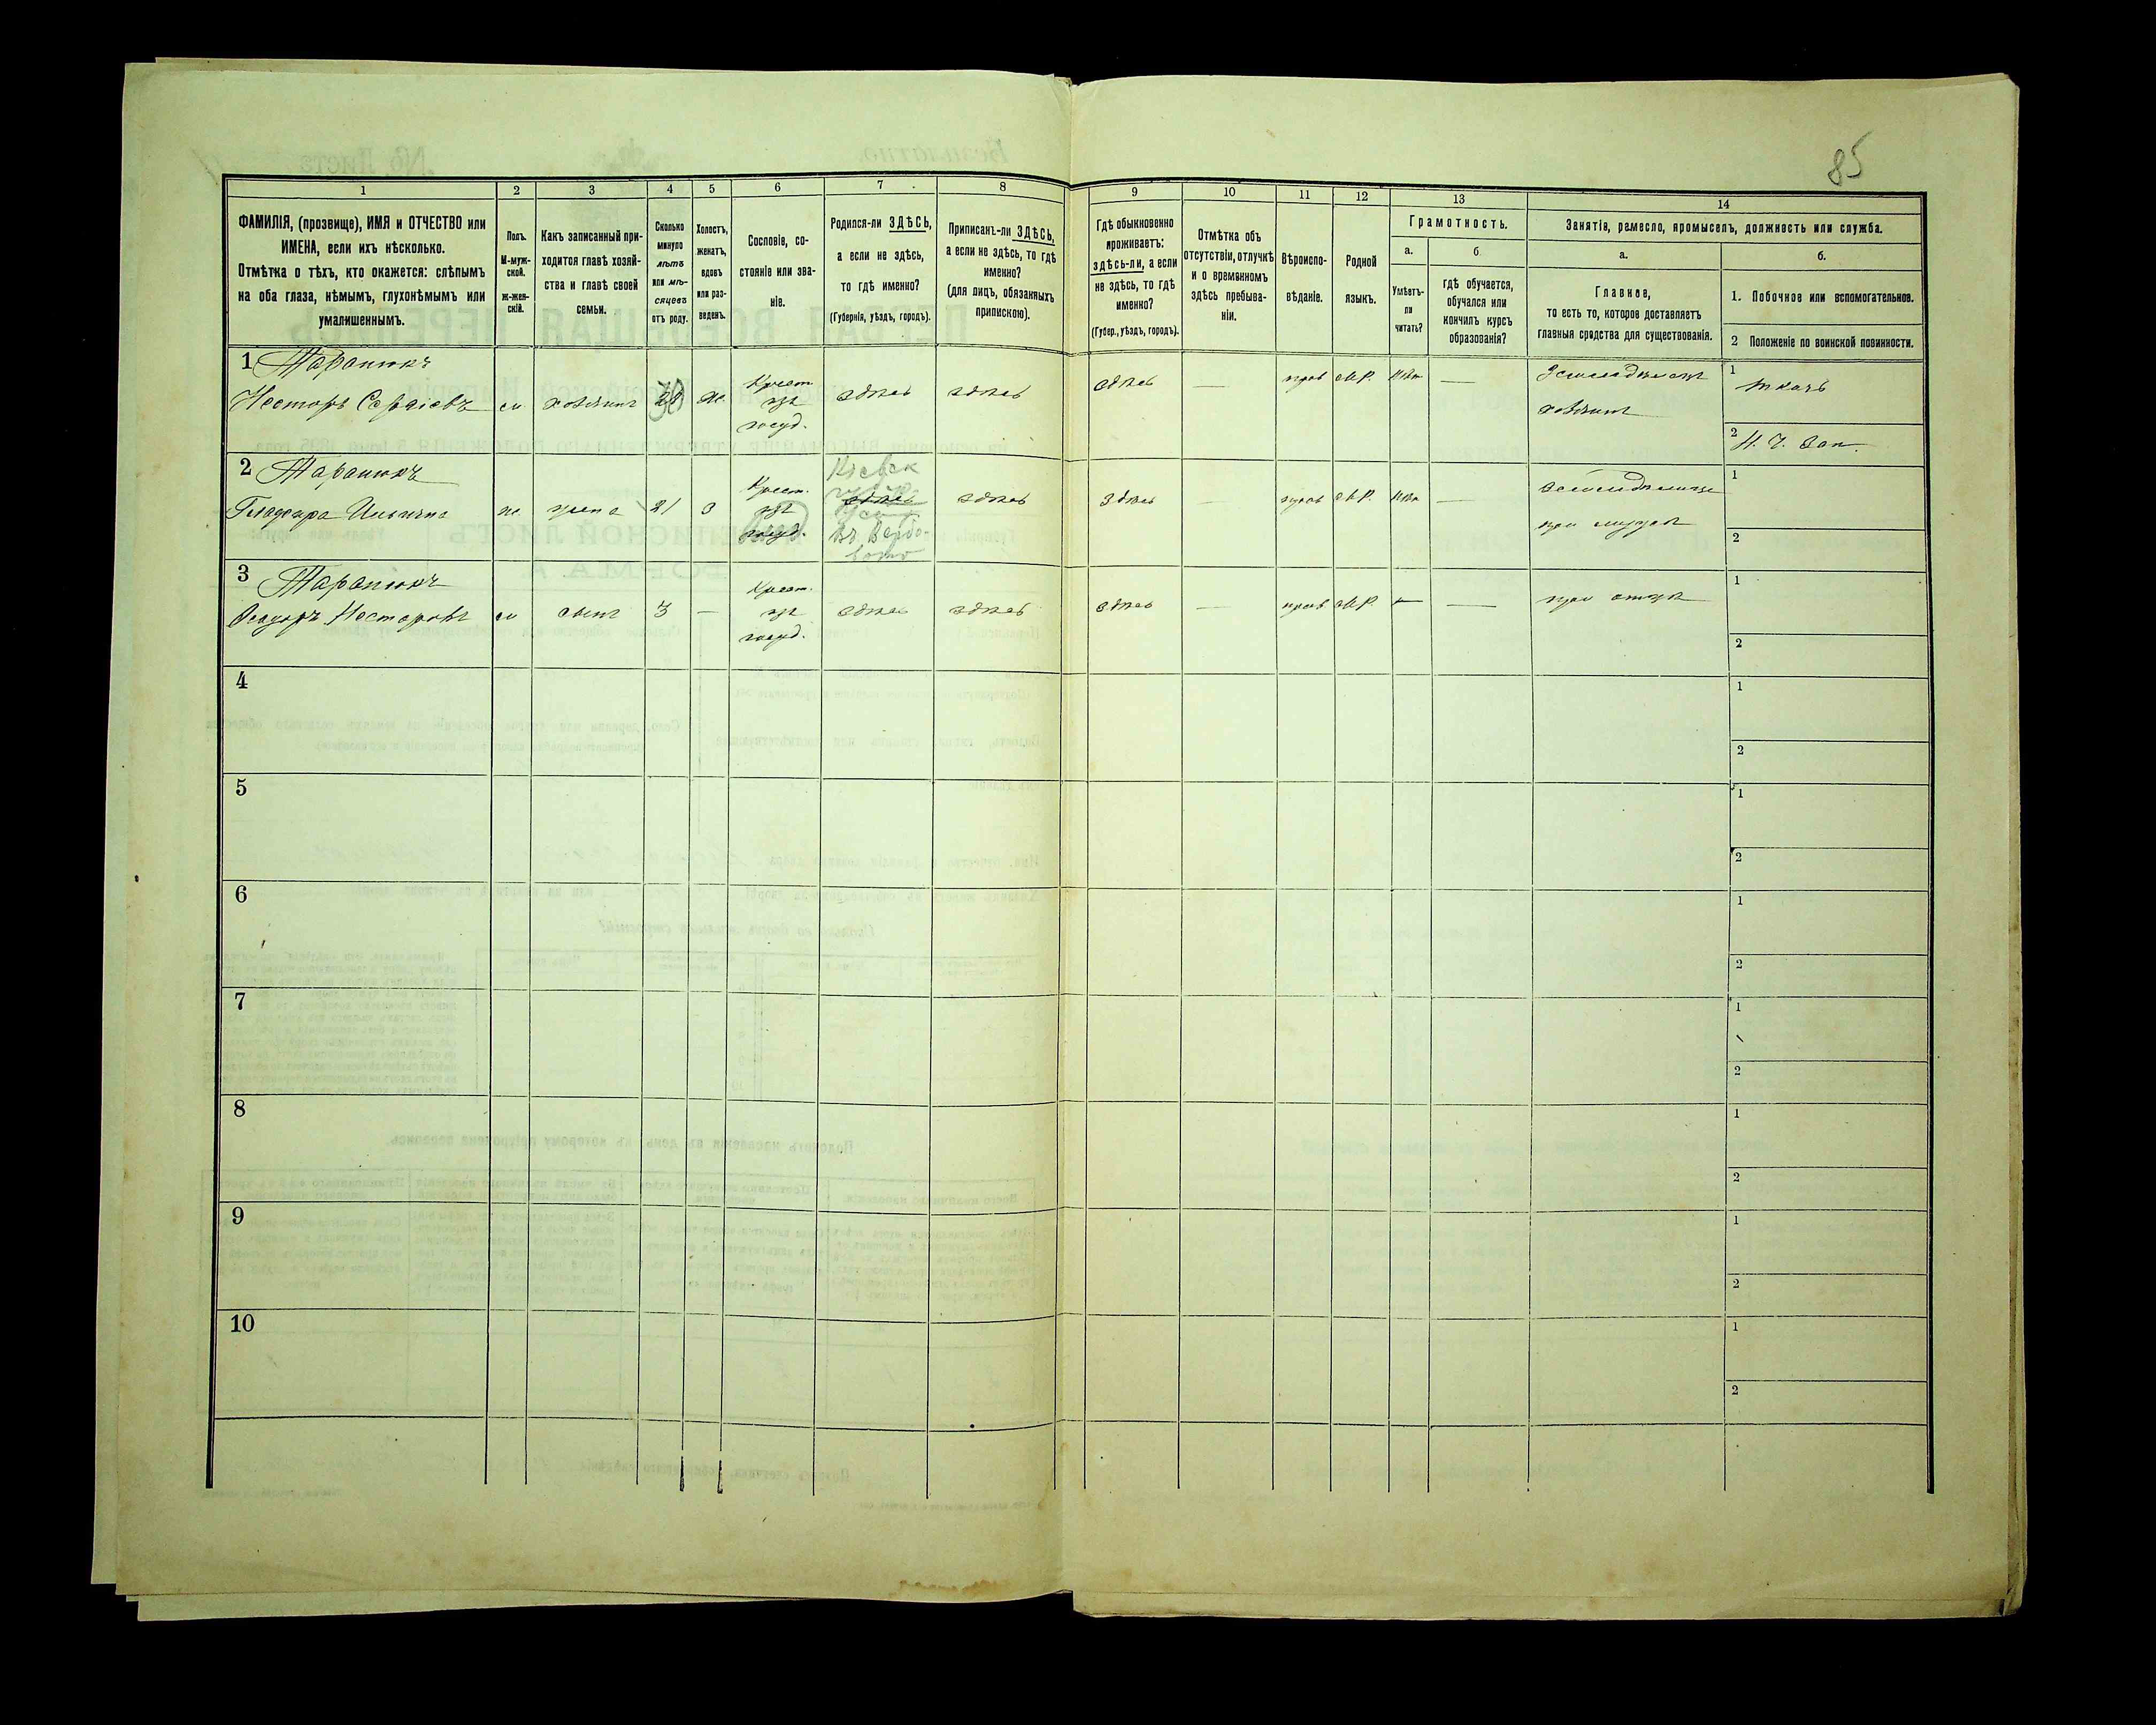 85
1 2 3 4 5 6 7 8 9 10 11 12 13 14
ФАМИЛІЯ, (прозвище), ИМЯ и ОТЧЕСТВО или
ИМЕНА, если ихъ нѣсколько.
Отмѣтка о тѣхъ, кто окажется: слѣпымъ
на оба глаза, нѣмымъ, глухонѣмымъ или
умалишеннымъ.
Полъ.
М-муж-
ской.
ж-жен-
скій.
Какъ записанный при-
ходится главѣ хозяй-
ства и главѣ своей
семьи.
Сколько
минуло
лѣтъ
или мѣ-
сяцевъ
отъ роду.
Холостъ,
женатъ,
вдовъ
или раз-
веденъ.
Сословіе, со-
стояніе или зва-
ніе.
Родился-ли ЗДѢСЬ,
а если не здѣсь,
то гдѣ именно?
(Губернія, уѣздъ, городъ).
Приписанъ-ли ЗДѢСЬ,
а если не здѣсь, то гдѣ
именно?
(для лицъ, обязанныхъ
припискою).
Гдѣ обыкновенно
проживаетъ:
здѣсь-ли, а если
не здѣсь, то гдѣ
именно?
(Губер., уѣздъ, городъ).
Отмѣтка объ
отсутствіи, отлучкѣ
и о временномъ
здѣсь пребыва-
ніи.
Вѣроиспо-
вѣданіе.
Родной
языкъ.
Грамотность.
а.
Умѣетъ-
ли
читать?
б
гдѣ обучается,
обучался или
кончилъ курсъ
образованія?
Занятія, ремесло, промыселъ, должность или служба.
а.
Главное,
то есть то, которое доставляетъ
главныя средства для существованія.
б.
1. Побочное или вспомогательное.
2 Положеніе по воинской повинности.
1 Таранюкъ
Несторъ Сергіевъ м хозяинъ ж. Крест.
изъ
госуд.
здѣсь здѣсь здѣсь — прав М.Р. нѣт —
Земледѣлецъ
хозяинъ
1 ткачъ
2 Н. Ч. Зап.
2 Таранюкъ
Гликерия Ильична ж. жена 21 З Крест.
изъ
Кіевск
здѣсь здѣсь — прав М.Р. нѣт —
при мужѣ
1
2
3 Таранюкъ
Ѳедоръ Несторовъ м сынъ 3 — Крест.
изъ
госуд.
здѣсь здѣсь здѣсь — прав М.Р. — —
при отцѣ
1
2
4
1
2
5
1
2
6
1
2
7
1
2
8
1
2
9
1
2
10
1
2